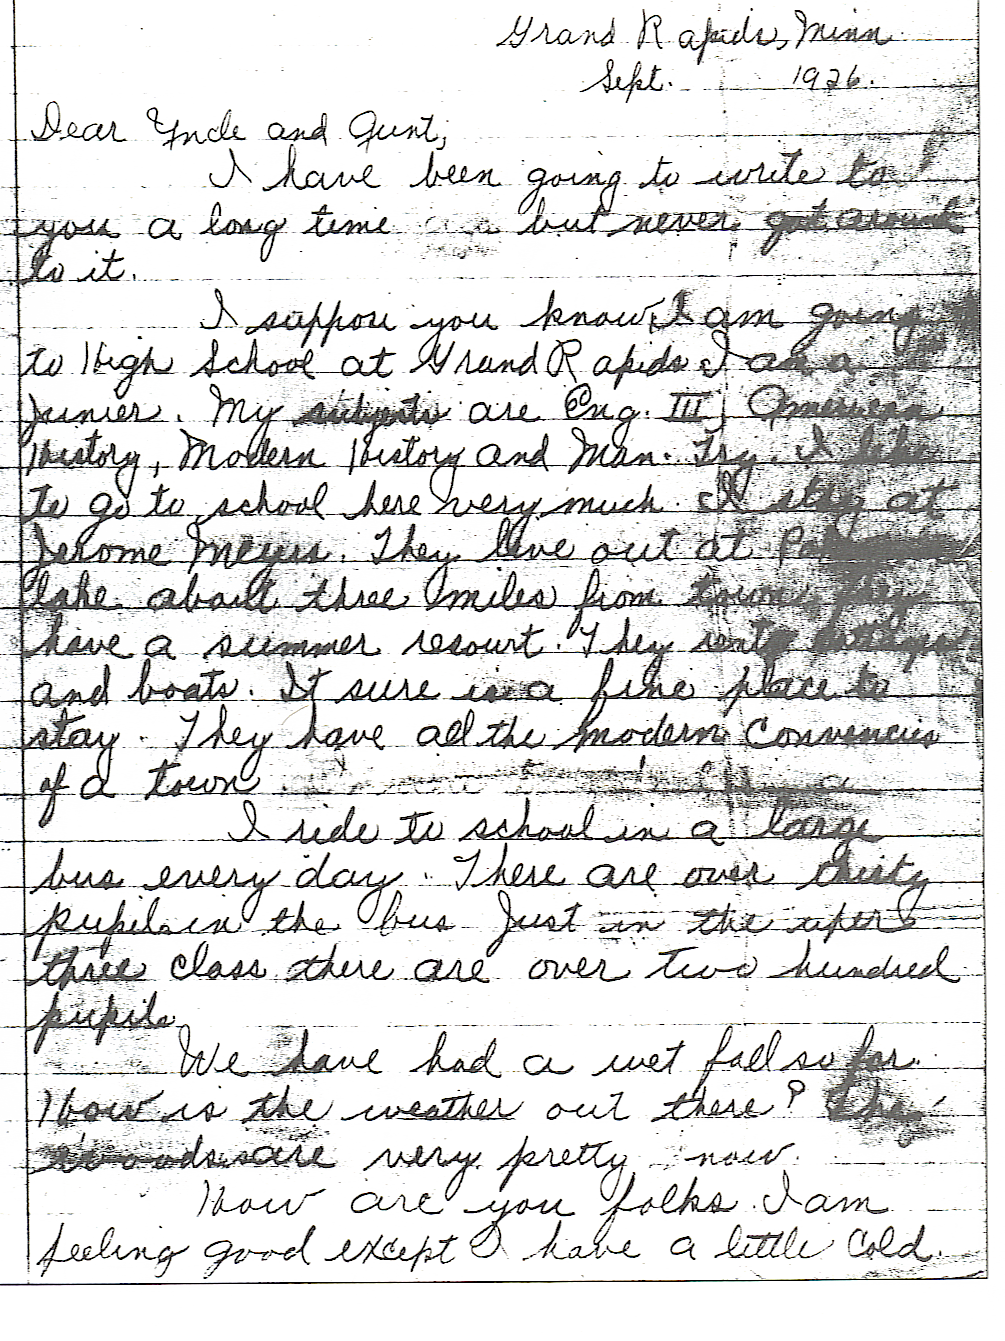 Grand Rapids, Minn.
Sept. 1926.
Dear Uncle and Aunt,
I have been going to write to
you a long time but never got around
to it.
I suppose you know, I am going
to High School at Grand Rapids I am a
Junier. My subjects are Eng. III, American
History, Modern History and Man. Trg. I like
to go to school here very much. I stay at
Jerome Meyers. They live out at
lake about three miles from town, they
have a summer resourt. They rent cottages
and boats. It sure is a fine place to
stay. They have all the modern convencies
of a town
I ride to school in a large
bus every day. There are over thirty
pupils in the bus Just in the uper
three class there are over two hundred
pupils
We have had a wet fall so far.
How is the weather out there? The
woods are very pretty now.
How are you folks. I am
feeling good except I have a little cold.